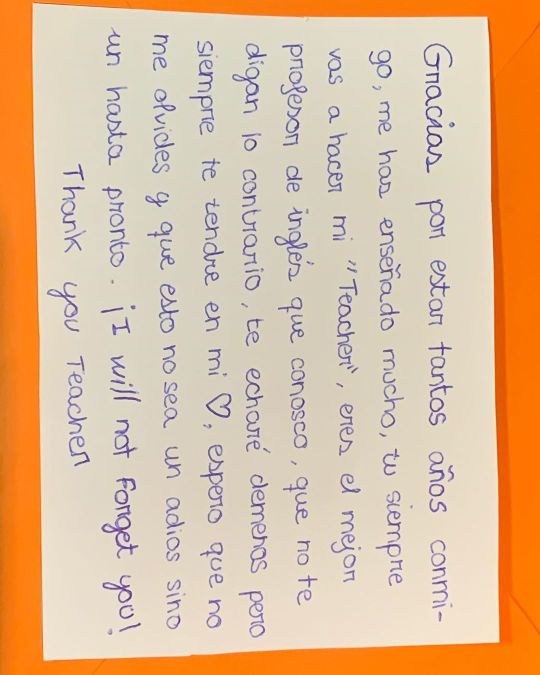 Gracias por estar tantos años conmi-
go, me has enseñado mucho, tu siempre
vas a hacer mi "Teacher", eres el mejor
profesor de inglés que conosco, que no te
digan lo contrario, te echaré demenos pero
siempre te tendre en mi ♡, espero que no
me olvides y que esto no sea un adios sino
un hasta pronto. ¡I will not forget you!
Thank you Teacher